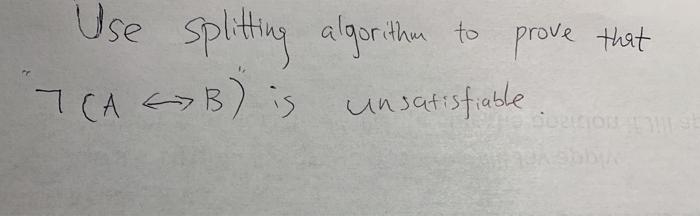 Use splitting algorithm to prove that
"¬(A ↔ B)" is unsatisfiable.